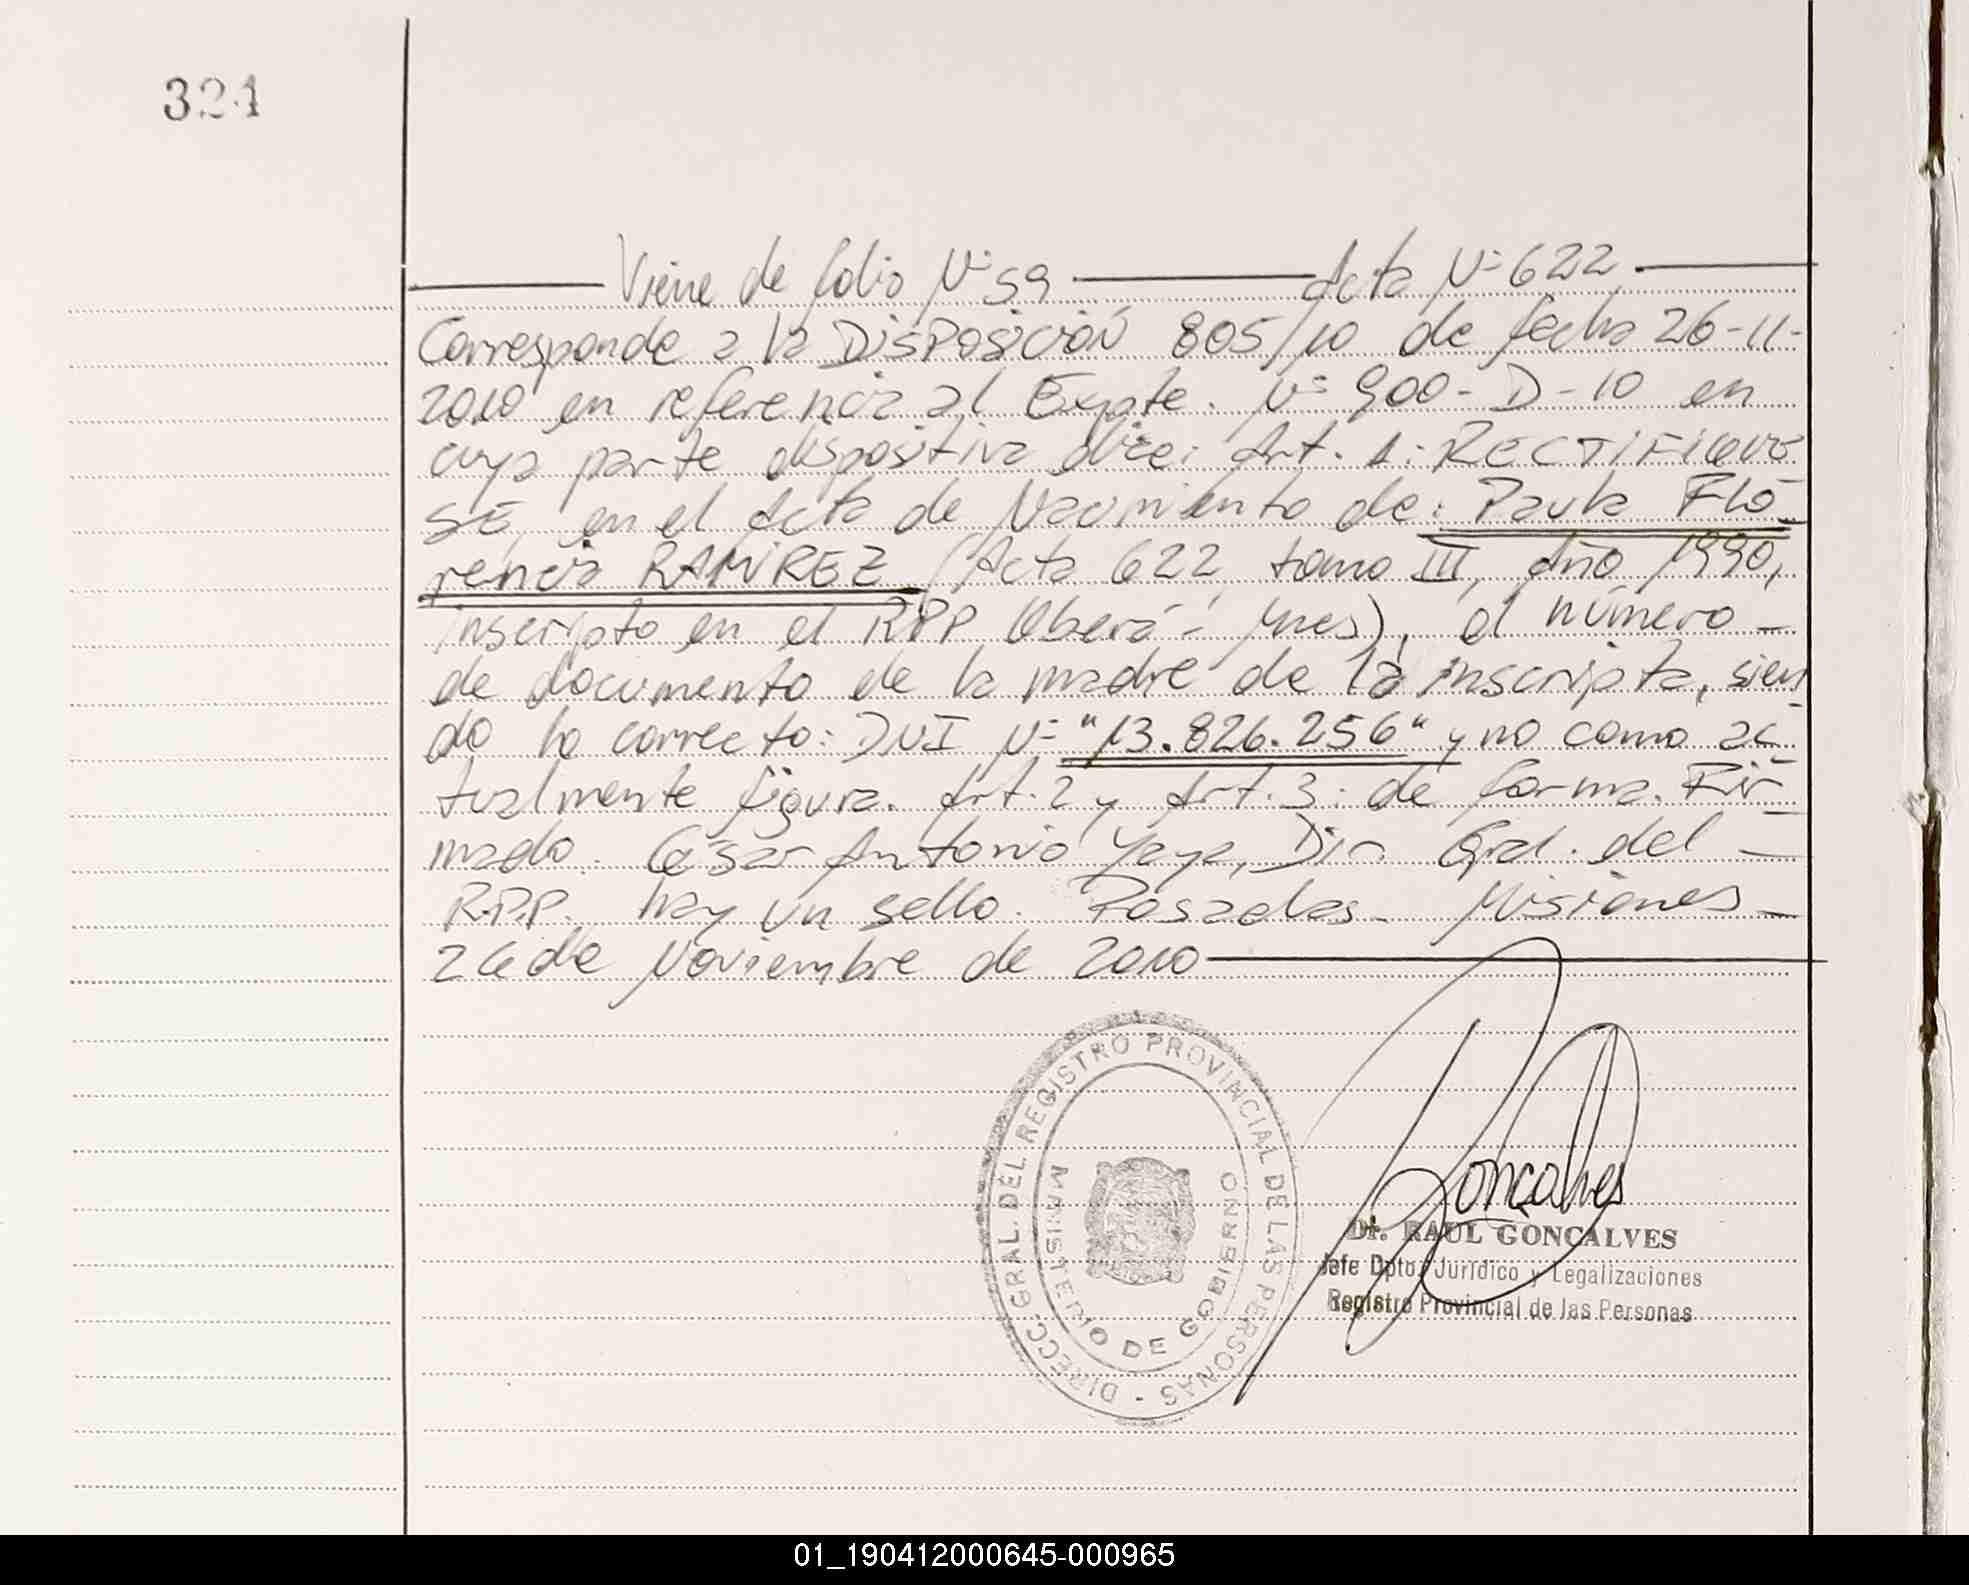 324
Viene de folio Nº 59 Acta Nº 622
Corresponde a la DISPOSICIÓN 805/10 de fecha 26-11-
2010 en referencia al Expte. Nº 900-D-10 en
cuya parte dispositiva dice: Art. 1: RECTIFIQUE
SE, en el Acta de Nacimiento de: Paula Flo
rencia RAMIREZ (Acta 622, tomo III, Año 1990,
inscripto en el RPP Oberá - Mnes), el número -
de documento de la madre de la inscripta, sien
do lo correcto: DNI Nº "13.826.256" y no como ac
tualmente figura. Art. 2 y Art. 3: de forma. Fir
mado. César Antonio Yaya, Dir. Gral. del -
R.P.P. hay un sello. Posadas - Misiones -
26 de Noviembre de 2010
DIRECC. GRAL. DEL REGISTRO PROVINCIAL DE LAS PERSONAS -
MINISTERIO DE GOBIERNO
Goncalves
Dr. RAUL GONCALVES
Jefe Dpto. Jurídico y Legalizaciones
Registro Provincial de las Personas
01_190412000645-000965